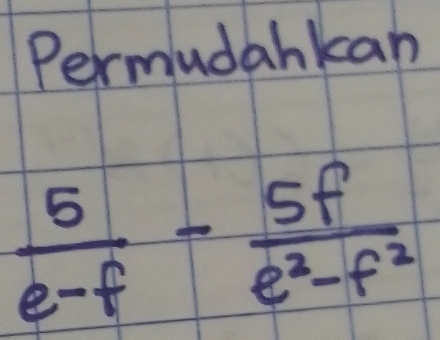 Permudahkan
\frac{5}{e-f} - \frac{5f}{e^2-f^2}